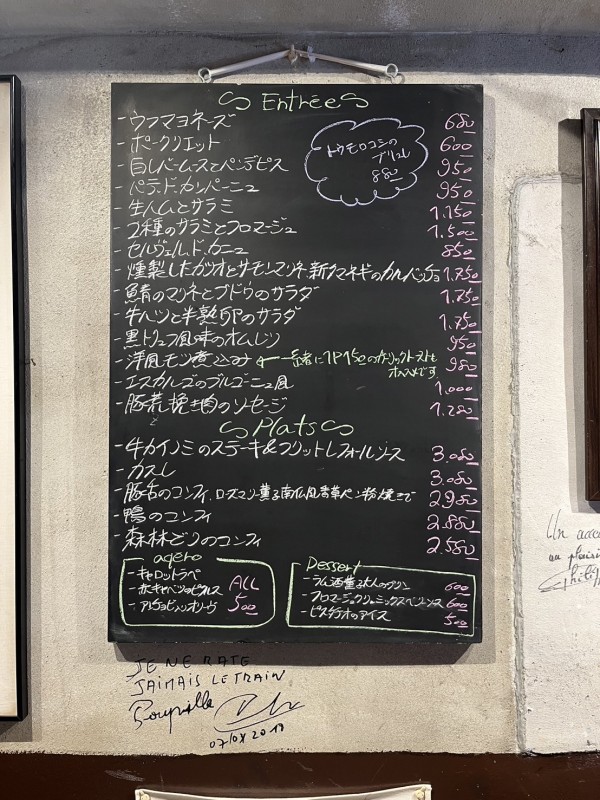 Entrées
-ウフマヨネーズ 680
-ポークリエット 600
トウモロコシの
ブリュレ
880
-白レバームースとパンデピス 950
-パテ.ド.カンパーニュ 950
-生ハムとサラミ 1.150
-2種のサラミとフロマージュ 1.500
-セルヴェル.ド.カニュ 850
-燻製したカツオとサーモンマリネ新タマネギのカルパッチョ 1.750
-鯖のマリネとブドウのサラダ 1.750
-牛ハツと半熟卵のサラダ 1.750
-黒トリュフ風味のオムレツ 950
-洋風モツ煮込み ← 一緒に1P150のガーリックトーストも
オススメです 980
-エスカルゴのブルゴーニュ風 1.000
-豚荒挽き肉のソーセージ 1.280
Plats
-牛カイノミのステーキ&フリットレフォールソース 3.080
-カスレ 3.080
-豚舌のコンフィ、ローズマリー薫る南仏風香草パン粉焼きで 2.980
-鴨のコンフィ 2.880
-森林どりのコンフィ 2.580
apéro
-キャロットラペ
-赤キャベツのピクルス
-アンチョビ入りオリーヴ
ALL
500
Dessert
-ラム酒薫る大人のプリン 600
-フロマージュクリュミックスベリーソース 600
-ピスタチオのアイス 500
JE NE RATE
JAIMAIS LE TRAIN
07/08 2019
Un acc
au plaisi